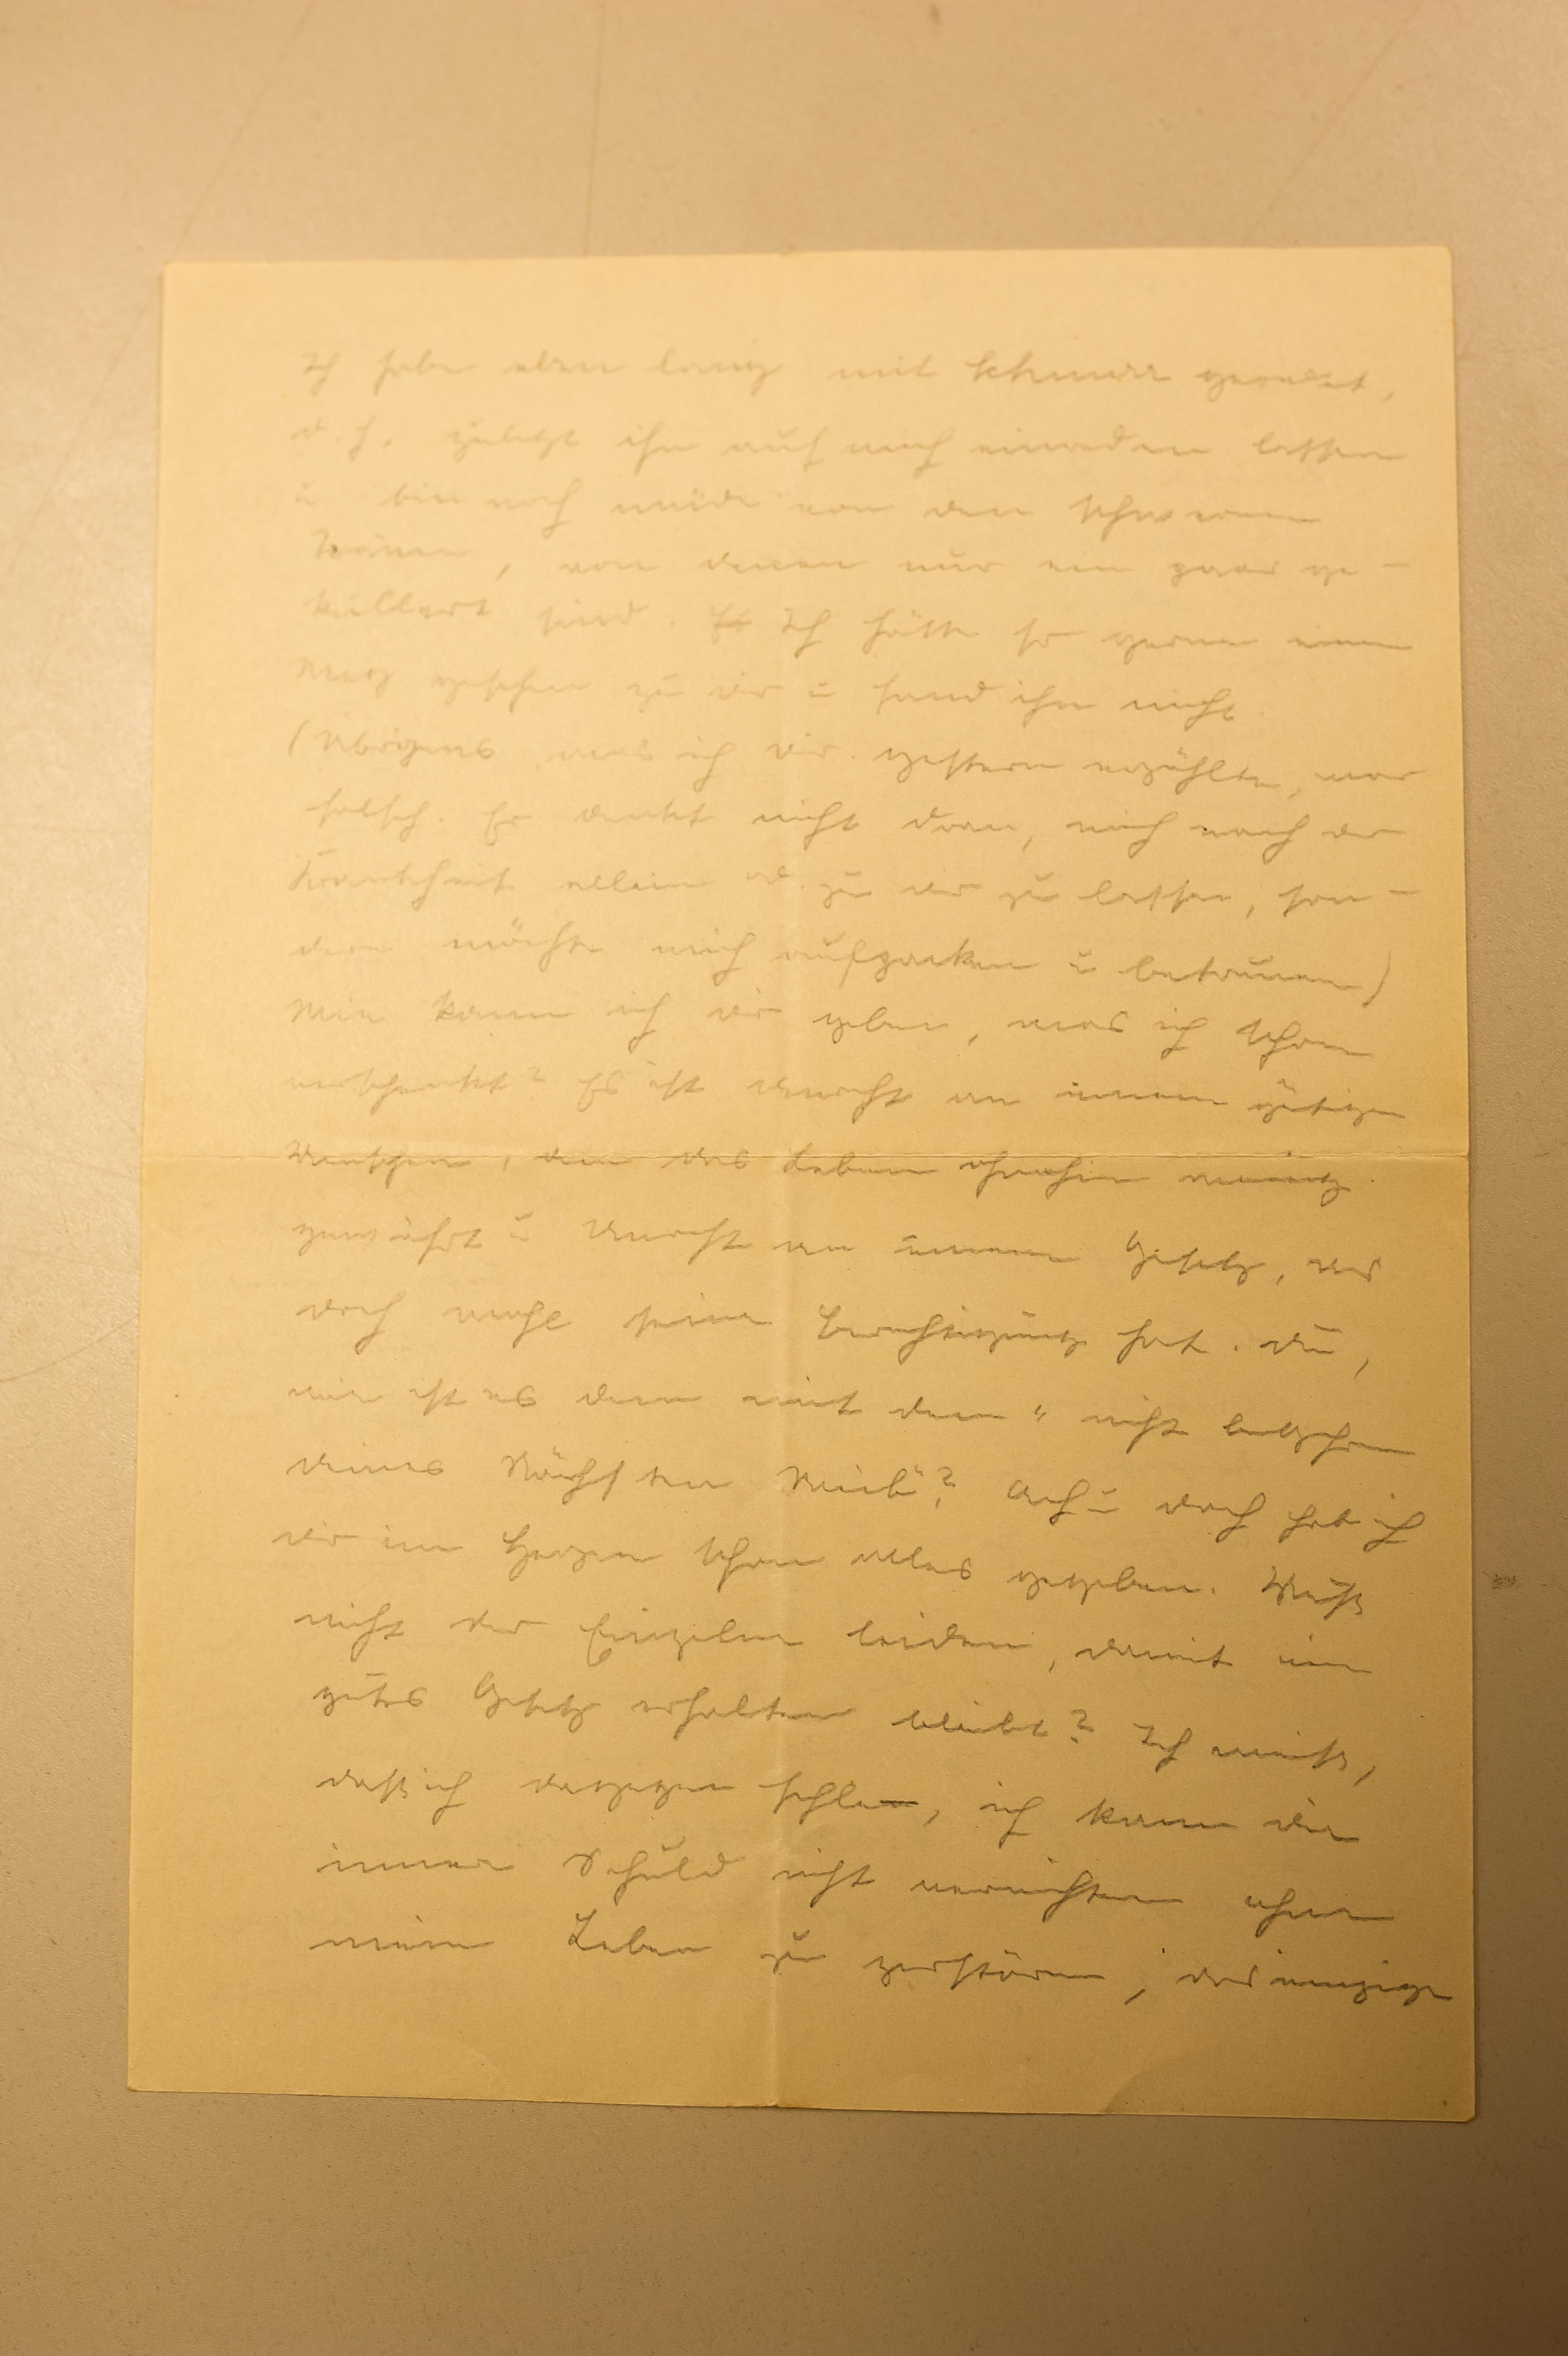 Ich habe eben lang mit Schmidt geredet,
d.h. zuletzt ihn auf mich einreden lassen
u bin noch müde von den schweren
Tränen, von denen nur ein paar ge-
kullert sind. Ich hätte so gerne einen
Weg gesehen zu dir u fand ihn nicht
(Übrigens was ich dir gestern erzählte, war
falsch. Er denkt nicht dran, mich nach der
Krankheit allein od. zu dir zu lassen, son-
dern möchte mich aufpacken u betreuen)
Wie kann ich dir geben, was ich schon
verschenkt? Es ist Unrecht an einem gütigen
Menschen, dem das Leben ohnehin wenig
gewährt u Unrecht an einem Gesetz, das
doch wohl seine Berechtigung hat. Du,
wie ist es denn mit dem "nicht begehren
deines Nächsten Weib"? Ach u doch hab ich
dir im Herzen schon alles gegeben. Muß
nicht der Einzelne leiden, damit ein
gutes Gesetz erhalten bleibt? Ich weiß,
daß ich dagegen fehle, ich kann die
innere Schuld nicht vernichten ohne
mein Leben zu zerstören, das einzige